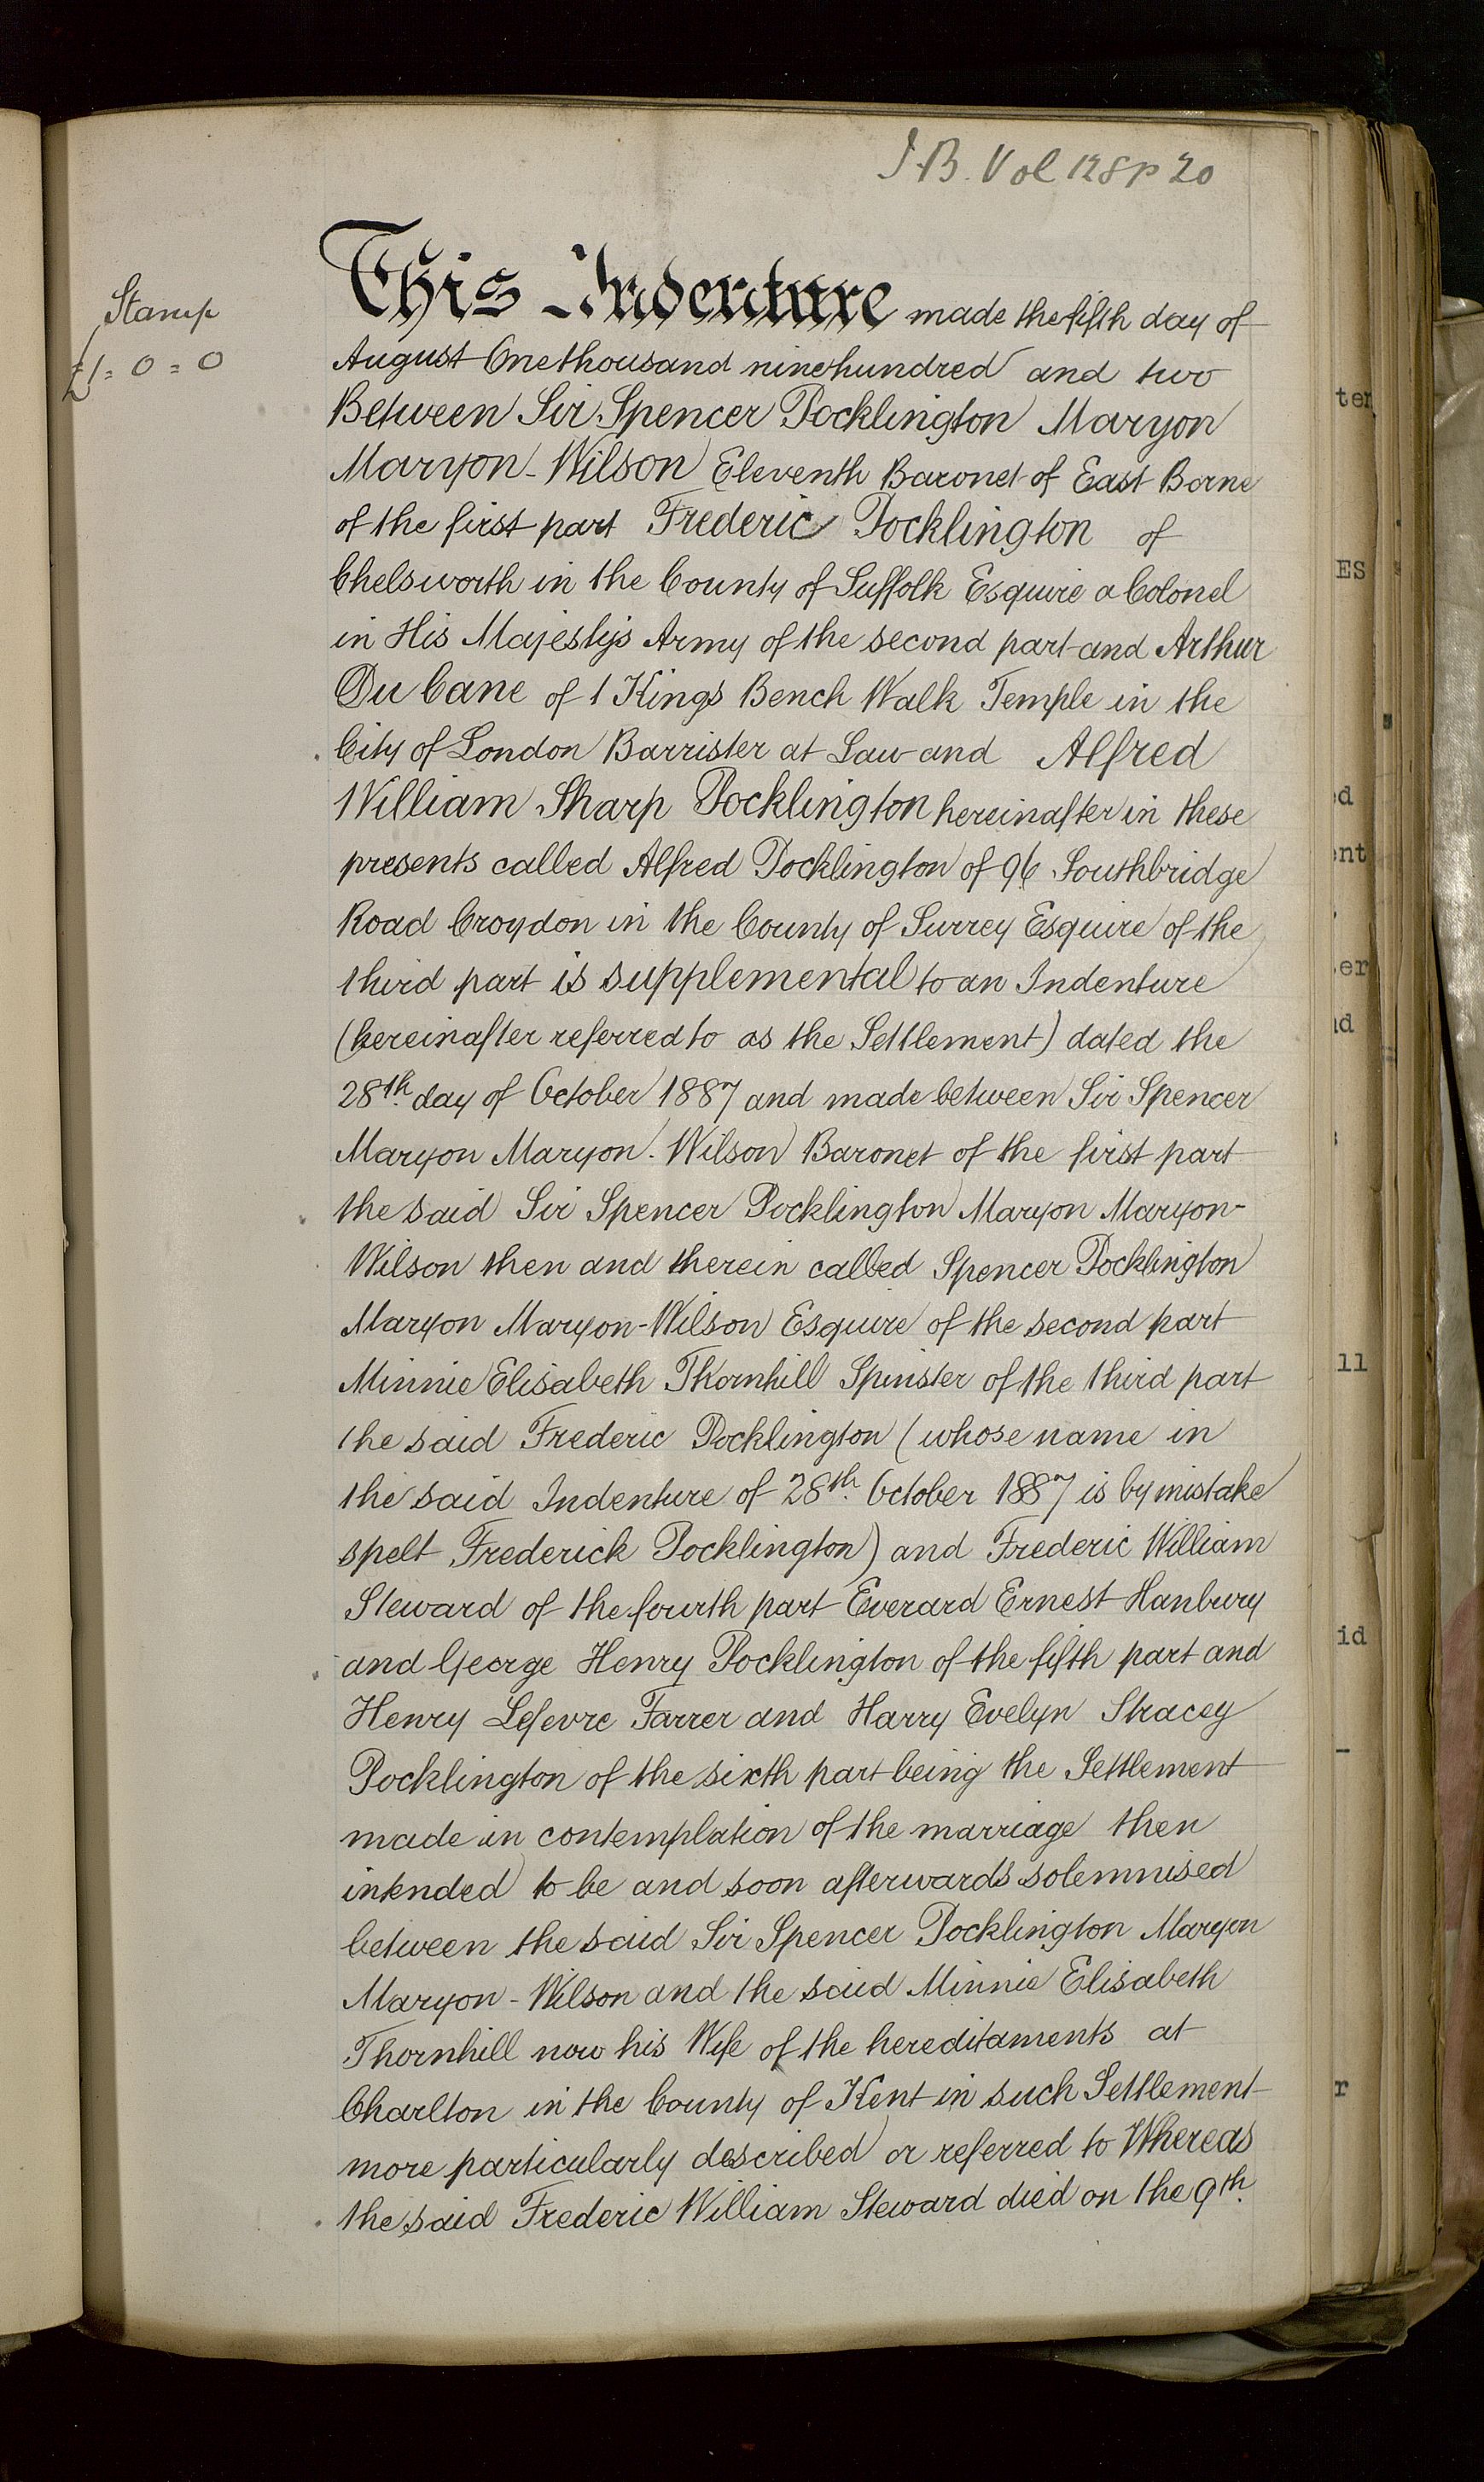 J.B. Vol 128 p 20
Stamp
£1=0=0
This Indenture made the fifth day of
August One thousand nine hundred and two
Between Sir Spencer Pocklington Maryon
Maryon-Wilson Eleventh Baronet of East Borne
of the first part Frederic Pocklington of
Chelsworth in the County of Suffolk Esquire a Colonel
in His Majesty's Army of the second part and Arthur
Du Cane of 1 Kings Bench Walk Temple in the
City of London Barrister at Law and Alfred
William Sharp Pocklington hereinafter in these
presents called Alfred Pocklington of 96 Southbridge
Road Croydon in the County of Surrey Esquire of the
third part is supplemental to an Indenture
(hereinafter referred to as the Settlement) dated the
28th day of October 1887 and made between Sir Spencer
Maryon Maryon-Wilson Baronet of the first part
the said Sir Spencer Pocklington Maryon Maryon-
Wilson then and therein called Spencer Pocklington
Maryon Maryon-Wilson Esquire of the second part
Minnie Elisabeth Thornhill Spinster of the third part
the said Frederic Pocklington (whose name in
the said Indenture of 28th October 1887 is by mistake
spelt Frederick Pocklington) and Frederic William
Steward of the fourth part Everard Ernest Hanbury
and George Henry Pocklington of the fifth part and
Henry Lefevre Farrer and Harry Evelyn Stracey
Pocklington of the sixth part being the Settlement
made in contemplation of the marriage then
intended to be and soon afterwards solemnised
between the said Sir Spencer Pocklington Maryon
Maryon-Wilson and the said Minnie Elisabeth
Thornhill now his Wife of the hereditaments at
Charlton in the County of Kent in such Settlement
more particularly described or referred to Whereas
the said Frederic William Steward died on the 9th